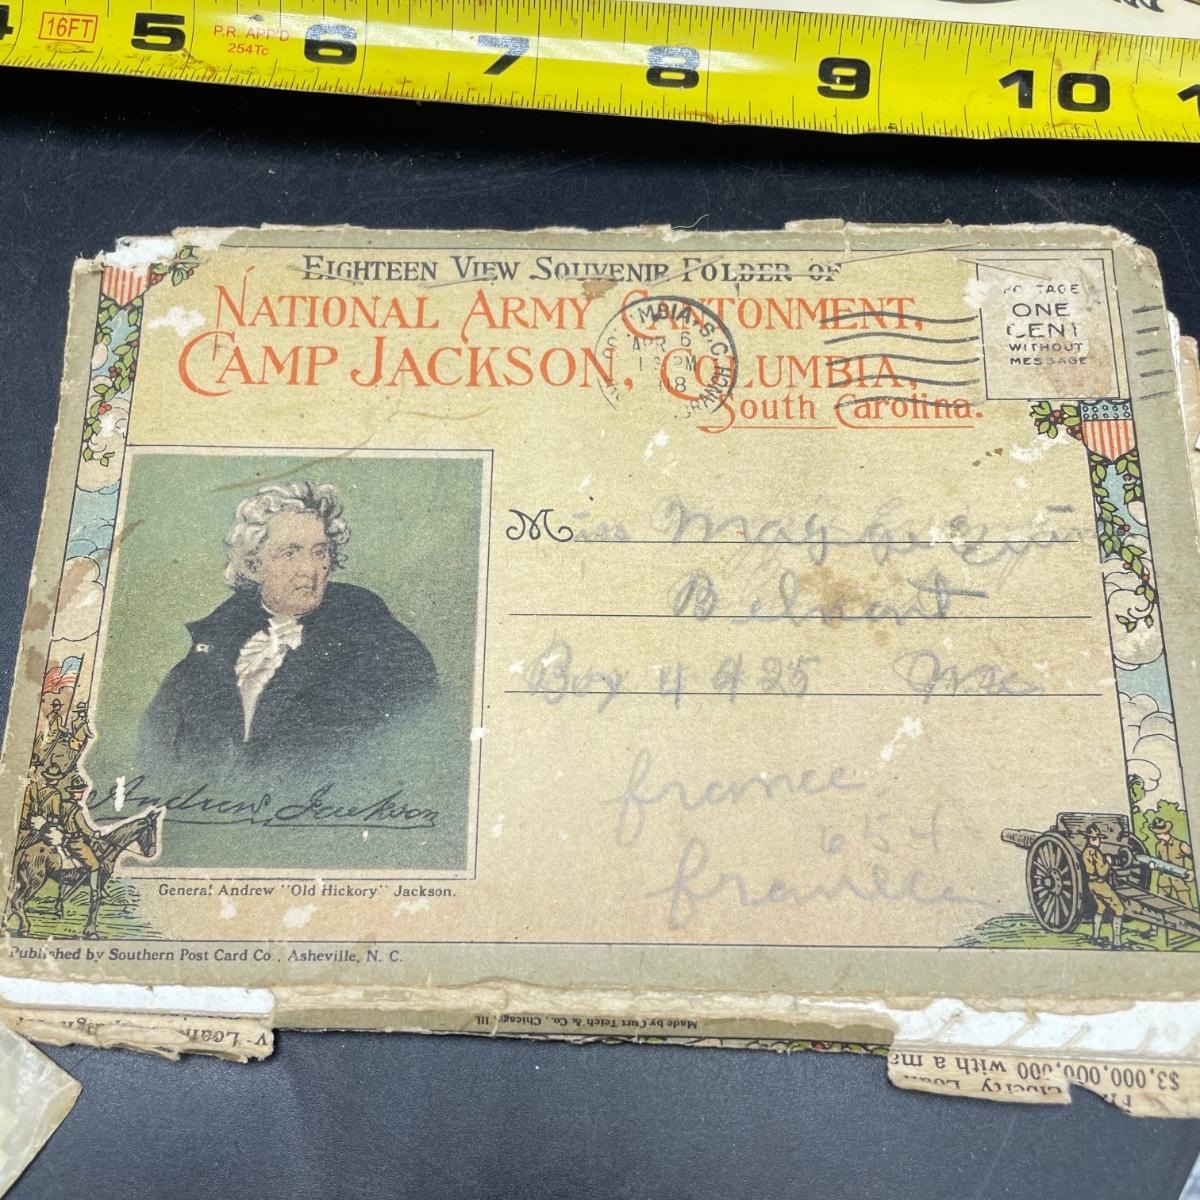 16FT
5
P.R. APP'D
254Tc
6
7
8
9
10
EIGHTEEN VIEW SOUVENIR FOLDER OF
NATIONAL ARMY CANTONMENT,
CAMP JACKSON, COLUMBIA,
South Carolina.
COLUMBIA, S.C.
APR 6
PM
BRANCH
POSTAGE
ONE
CENT
WITHOUT
MESSAGE
Miss May
Belmont
Box 4425
france
france
Andrew Jackson
General Andrew "Old Hickory" Jackson.
Published by Southern Post Card Co., Asheville, N. C.
Made by Curt Teich & Co., Chicago, Ill.
Loan
Liberty Loan
$3,000,000,000 with a